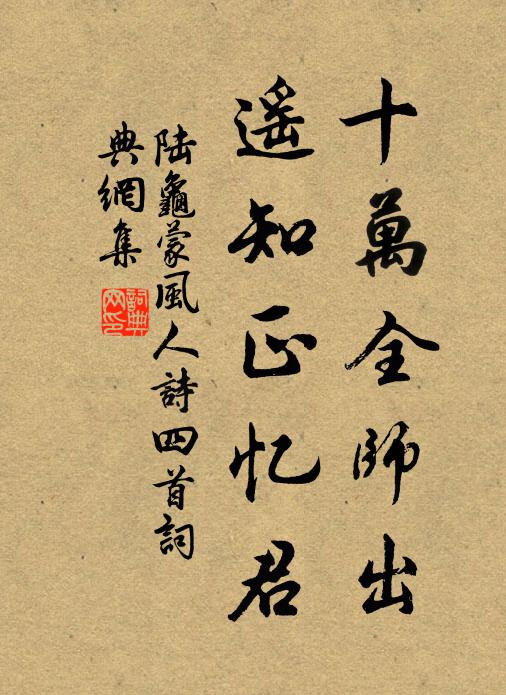 十萬全師出
遥知正忆君
陆龜蒙風人詩四首詞
典網集
詞典网印